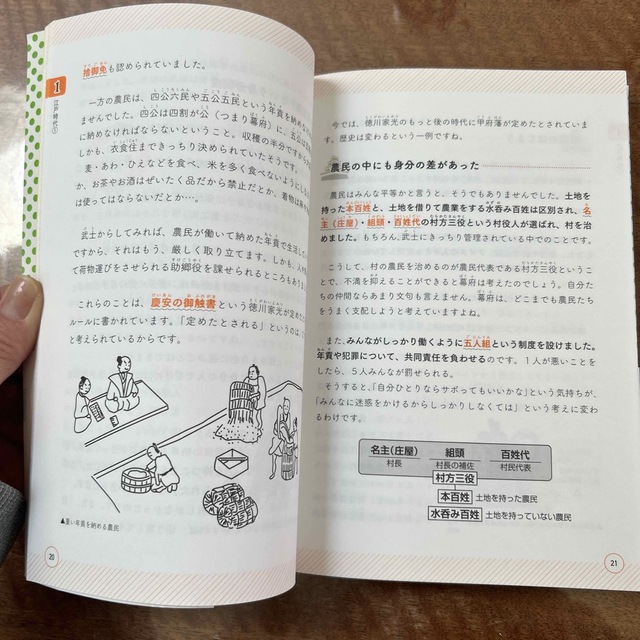 1
江戸時代①
捨御免も認められていました。
一方の農民は、四公六民や五公五民という年貢を納めなければ
ませんでした。四公は四割が公（つまり幕府）に、五公は
に納めなければならないということ。収穫の半分ですから
しかも、衣食住まできっちり決められていたそうです。
麦・あわ・ひえなどを食べ、米を多く食べないように
か、お茶やお酒はぜいたく品だから禁止だとか、着物は麻や
は使ってはならないだとか…。
武士からしてみれば、農民が働いて納めた年貢で生活して
ですから、それはもう、厳しく取り立てます。しかも、
て荷物運びをさせられる助郷役を課せられるところもありま
これらのことは、慶安の御触書という徳川家光が定めた
ルールに書かれています。「定めたとされる」というのは、
と考えられているからです。
▲重い年貢を納める農民
20
今では、徳川家光のもっと後の時代に甲府藩が定めたとされていま
す。歴史は変わるという一例ですね。
農民の中にも身分の差があった
農民はみんな平等かと言うと、そうでもありませんでした。土地を
持った本百姓と、土地を借りて農業をする水呑み百姓は区別され、名
主（庄屋）・組頭・百姓代の村方三役という村役人が選ばれ、村を治
めました。もちろん、武士にきっちり管理されている中でのことです。
こうして、村の農民を治めるのが農民代表である村方三役というこ
とで、不満を抑えることができると幕府は考えたのでしょう。自分た
ちの仲間ならあまり文句も言えません。幕府は、どこまでも農民たち
をうまく支配しようと考えていますよね。
また、みんながしっかり働くように五人組という制度を設けました。
年貢や犯罪について、共同責任を負わせるのです。1人が悪いことを
したら、5人みんなが罰せられる。
そうすると、「自分ひとりならサボってもいいかな」という気持ちが、
「みんなに迷惑をかけるからしっかりしなくては」という考えに変わ
るわけです。
名主（庄屋） 組頭 百姓代
村長 村長の補佐 村民代表
村方三役
本百姓 土地を持った農民
水呑み百姓 土地を持っていない農民
21